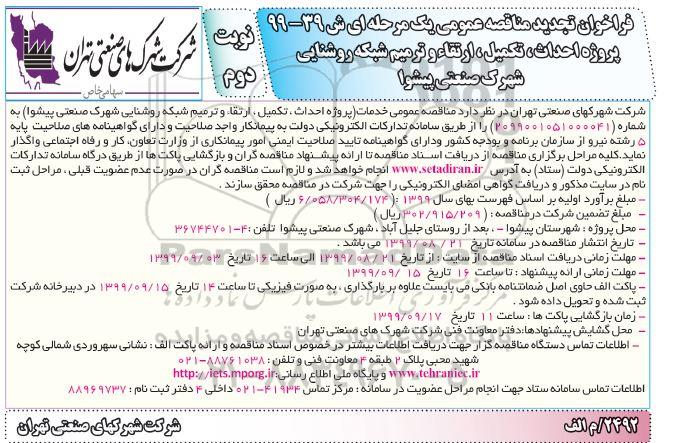 فراخوان تجدید مناقصه عمومی یک مرحله ای ش ۳۹-۹۹
پروژه احداث، تکمیل، ارتقاء و ترمیم شبکه روشنایی
شهرک صنعتی پیشوا
نوبت
دوم
شرکت شهرک های صنعتی تهران
سهامی خاص
شرکت شهرکهای صنعتی تهران در نظر دارد مناقصه عمومی خدمات(پروژه احداث ، تکمیل ، ارتقاء و ترمیم شبکه روشنایی شهرک صنعتی پیشوا) به
شماره (۲۰۹۹۰۰۱۰۵۱۰۰۰۰۴۱) را از طریق سامانه تدارکات الکترونیکی دولت به پیمانکار واجد صلاحیت و دارای گواهینامه های صلاحیت پایه
۵ رشته نیرو از سازمان برنامه و بودجه کشور ودارای گواهینامه تایید صلاحیت ایمنی امور پیمانکاری از وزارت تعاون، کار و رفاه اجتماعی واگذار
نماید.کلیه مراحل برگزاری مناقصه از دریافت اسناد مناقصه تا ارائه پیشنهاد مناقصه گران و بازگشایی پاکت ها از طریق درگاه سامانه تدارکات
الکترونیکی دولت (ستاد) به آدرس www.setadiran.ir انجام خواهد شد و لازم است مناقصه گران در صورت عدم عضویت قبلی ، مراحل ثبت
نام در سایت مذکور و دریافت گواهی امضای الکترونیکی را جهت شرکت در مناقصه محقق سازند .
- مبلغ برآورد اولیه بر اساس فهرست بهای سال ۱۳۹۹ : (۶/۰۵۸/۳۰۴/۱۷۴ ریال )
- مبلغ تضمین شرکت در مناقصه : (۳۰۲/۹۱۵/۲۰۹ ریال )
- محل پروژه : شهرستان پیشوا - ، بعد از روستای جلیل آباد ، شهرک صنعتی پیشوا تلفن :۴-۳۶۷۴۴۷۰۱
- تاریخ انتشار مناقصه در سامانه تاریخ ۲۱ / ۰۸ /۱۳۹۹ می باشد .
- مهلت زمانی دریافت اسناد مناقصه از سایت : از تاریخ ۲۱ /۰۸ /۱۳۹۹ الی ساعت ۱۶ تاریخ ۱۳۹۹/۰۹/۰۳
- مهلت زمانی ارائه پیشنهاد : تا ساعت ۱۶ تاریخ ۱۵ /۱۳۹۹/۰۹
- پاکت الف حاوی اصل ضمانتنامه بانکی می بایست علاوه بر بارگذاری ، به صورت فیزیکی تا ساعت ۱۴ تاریخ ۱۳۹۹/۰۹/۱۵ در دبیرخانه شرکت
ثبت شده و تحویل داده شود .
- زمان بازگشایی پاکت ها : ساعت ۱۱ تاریخ ۱۳۹۹/۰۹/۱۷
- محل گشایش پیشنهادها: دفتر معاونت فنی شرکت شهرک های صنعتی تهران
- اطلاعات تماس دستگاه مناقصه گزار جهت دریافت اطلاعات بیشتر در خصوص اسناد مناقصه و ارائه پاکت الف : نشانی سهروردی شمالی کوچه
شهید محبی پلاک ۲ طبقه ۴ معاونت فنی و تلفن : ۸۸۷۶۱۰۳۸-۰۲۱
www.tehraniec.ir و پایگاه ملی اطلاع رسانی: http://iets.mporg.ir
اطلاعات تماس سامانه ستاد جهت انجام مراحل عضویت در سامانه : مرکز تماس ۴۱۹۳۴-۰۲۱ داخلی ۴ دفتر ثبت نام : ۸۸۹۶۹۷۳۷
۲۴۹۲/م الف
شرکت شهرکهای صنعتی تهران